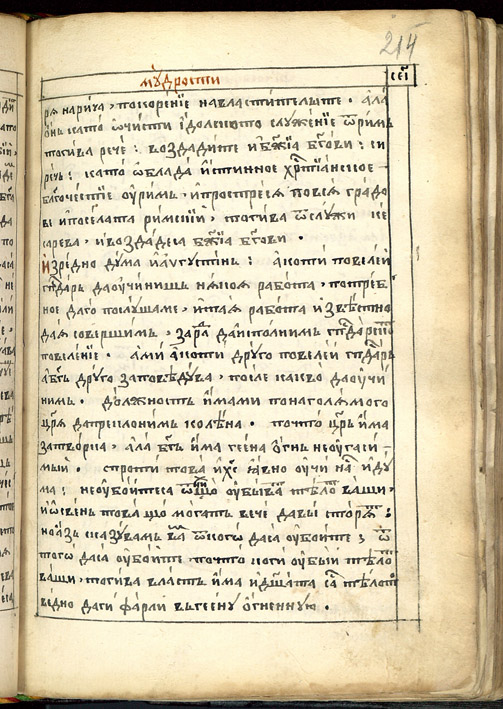 214
мꙋ́дрости сеі
рѧ нарича, покоренїе навластителыте. ала
ѡнь като ѡчисти їдолското слꙋженїе ѿримь
тогива рече: воздадите и бж҃їа бг҃ови: си
речь: като ѡблада и҆стинное хрⷭ҇тїанское
благочестїе ꙋ҆римь, ипростресе повсѧ градо
ве ипоселата римскїи, тогива ѿслꙋжи ке
сарева, ивоздадеса бж҃їа бг҃ови.
Изрѧдно дꙋма иаѵгꙋстинь: а҆коти повелей
гпⷭ҇дарь даꙋчинишь някоꙗ работа, потреб
ное даго послꙋшаме, итаꙗ работа извѣстно
даꙗ совершимь, даисполнимь гпⷭ҇дарско
повеленїе. ами а҆коти дрꙋго повелей гпⷭ҇дарь
абг҃ь дрꙋго заповѣдꙋва, после какво даꙋчи
нимь. должность имами понаголѧмого
цр҃ꙗ дапреклонимь колѣна. почто цр҃ь има
затворка, ала бг҃ь има геена ѻгнь неꙋгаси
мый. спроти това іи҃с ꙗвно ꙋчи на҆ идꙋ
ма: неꙋбойтеса ꙋбыватъ тѣло ваши,
иѡсвень това що могать вече давы сторѧтъ:
ноазь сказꙋвамь ваⷨ ѿкого даса ꙋбоите; ѿ
того даса ꙋбоите, почто коги ꙋбый тѣло
ваши, тогива власть има идш҃ата са тѣлото
ведно даги фарли вьгеенꙋ ѻгненнꙋю.